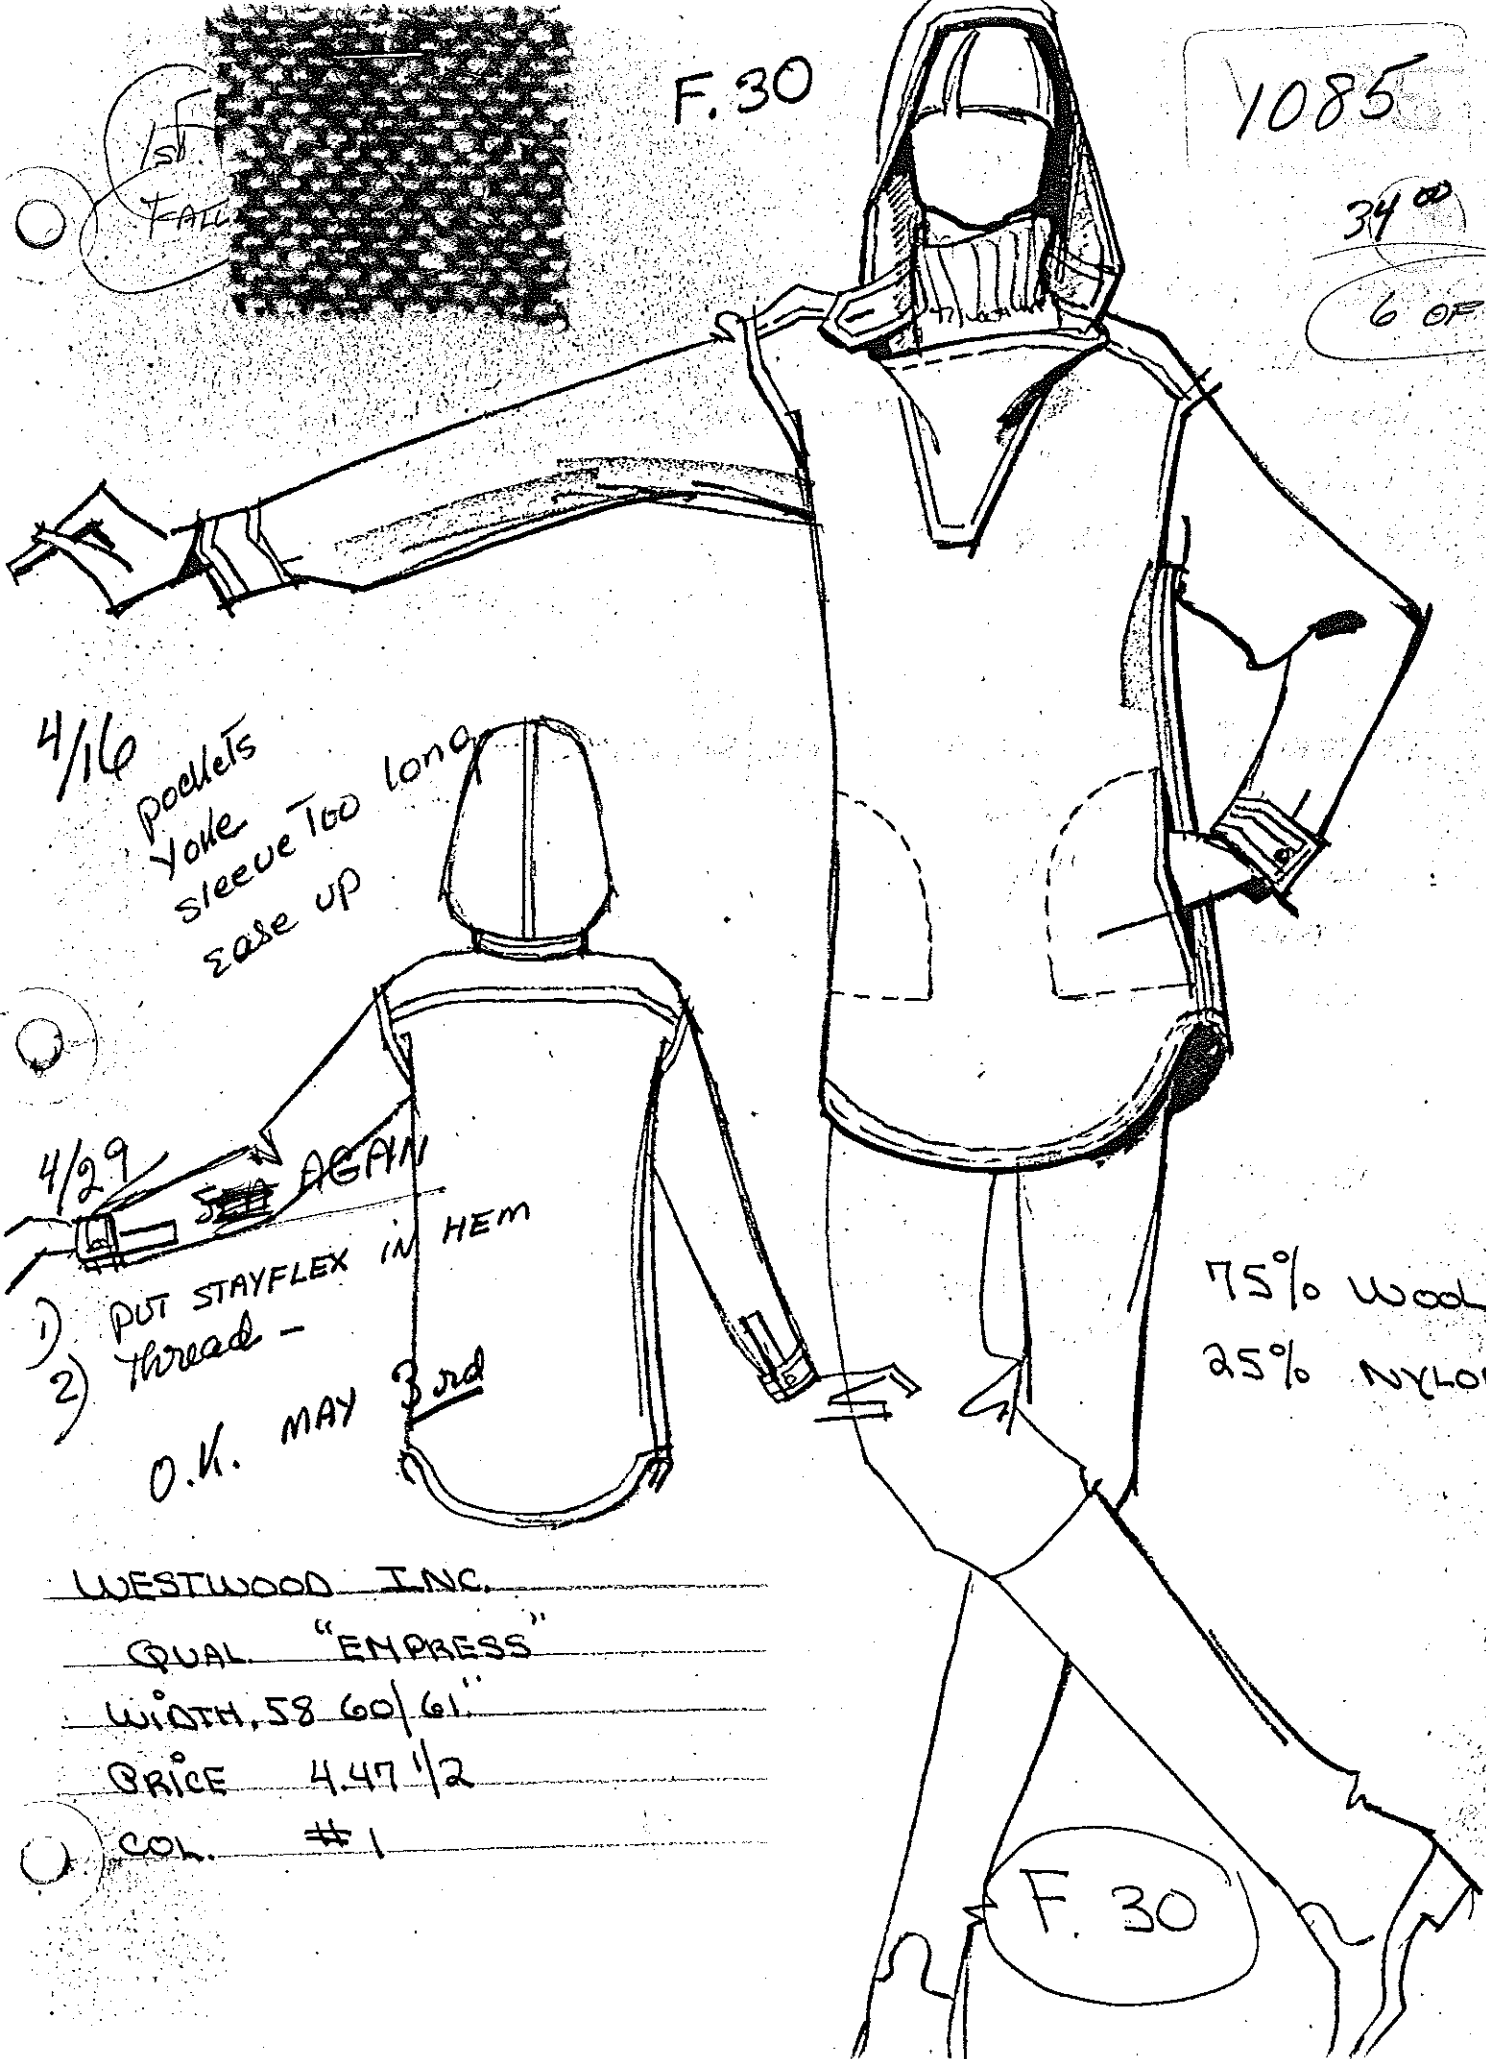 1st.
FALL
F. 30
1085
34 00
6 OF
4/16
pockets
yoke
sleeve Too long
ease up
4/29
AGAIN
1) PUT STAYFLEX IN HEM
2) Thread -
O.K. MAY 3rd
75% WOOL
25% NYLON
WESTWOOD INC.
QUAL. "EMPRESS"
WIDTH. 58 60/61"
PRICE 4.47 1/2
COL. # 1
F. 30